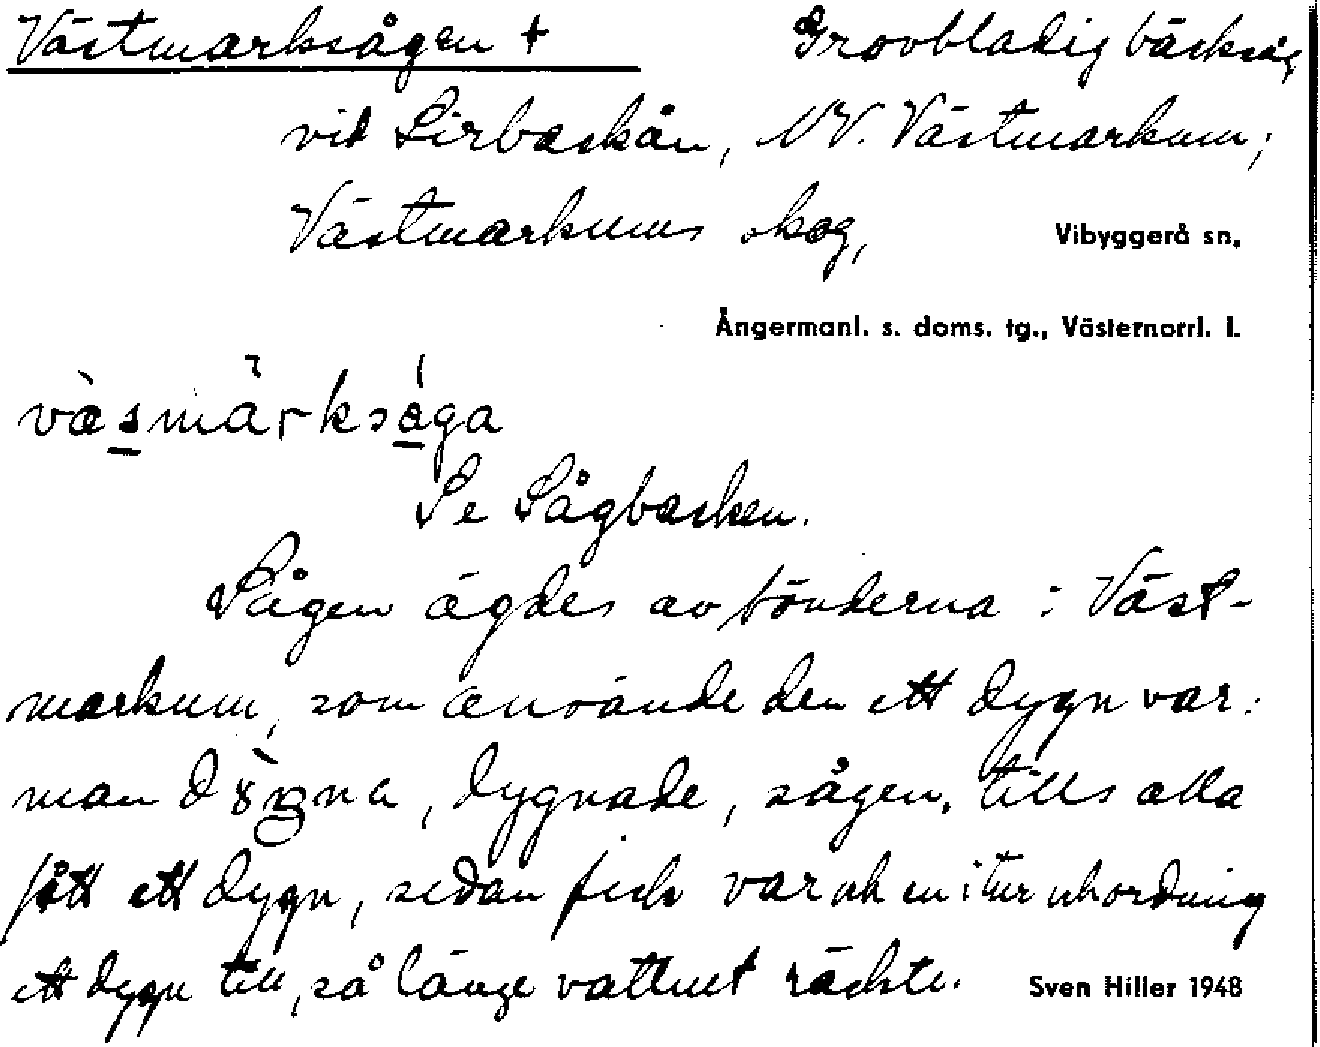 Västmarksågen † Grovbladig bäcksåg
vid Sirbäckån, NV. Västmarkum;
Västmarkums skog, Vibyggerå sn,
Ångermanl. s. doms. tg., Västernorrl. l.
vàsmàrksága
Se Sågbäcken.
Sågen ägdes av bönderna i Väst-
markum, som använde den ett dygn var:
man dỳgna, dygnade, sågen, tills alla
fått ett dygn, sedan fick var och en i tur och ordning
ett dygn till, så länge vattnet räckte. Sven Hiller 1948